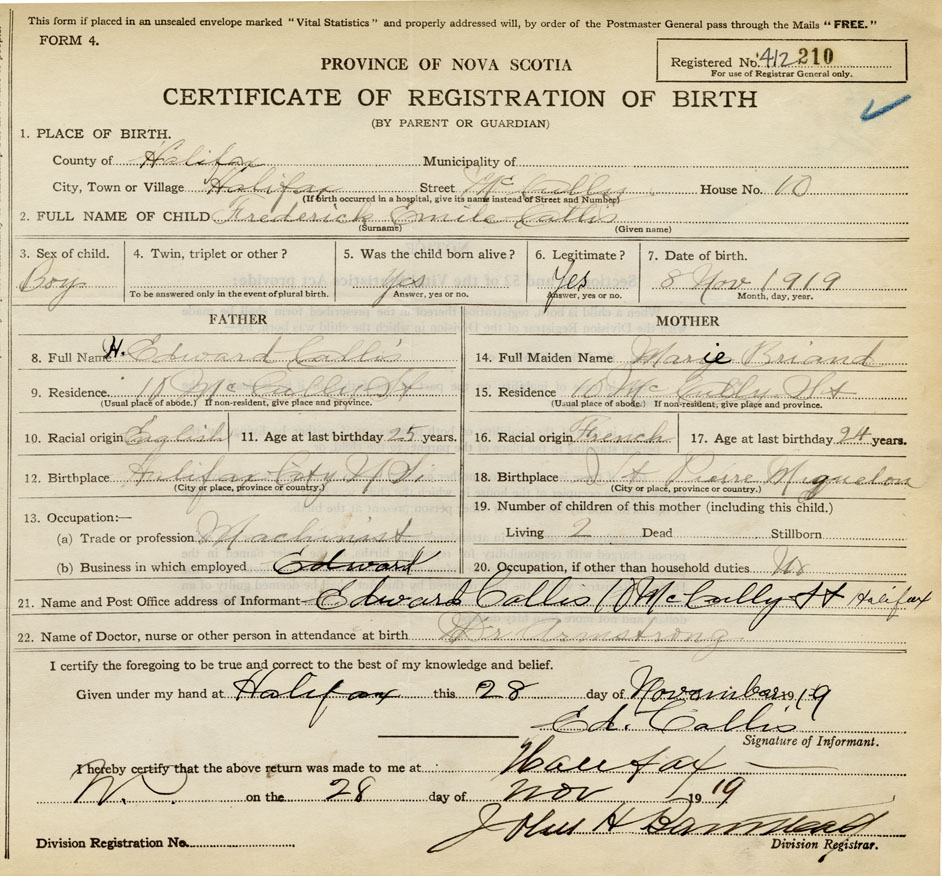 This form if placed in an unsealed envelope marked "Vital Statistics" and properly addressed will, by order of the Postmaster General pass through the Mails "FREE."
FORM 4.
Registered No. 412 210
For use of Registrar General only.
PROVINCE OF NOVA SCOTIA
CERTIFICATE OF REGISTRATION OF BIRTH
(BY PARENT OR GUARDIAN)
1. PLACE OF BIRTH.
County of Halifax Municipality of
City, Town or Village Halifax Street McCully House No. 10
(If birth occurred in a hospital, give its name instead of Street and Number)
2. FULL NAME OF CHILD Frederick Emile Callis
(Surname) (Given name)
3. Sex of child. 4. Twin, triplet or other? 5. Was the child born alive? 6. Legitimate? 7. Date of birth.
Boy Yes Yes 8 Nov 1919
To be answered only in the event of plural birth. Answer, yes or no. Answer, yes or no. Month, day, year.
FATHER MOTHER
8. Full Name H. Edward Callis 14. Full Maiden Name Marie Briand
9. Residence 10 McCully St 15. Residence 10 McCully St
(Usual place of abode.) If non-resident, give place and province. (Usual place of abode.) If non-resident, give place and province.
10. Racial origin English 11. Age at last birthday 25 years. 16. Racial origin French 17. Age at last birthday 24 years.
12. Birthplace Halifax City N.S. 18. Birthplace St Pierre Miquelon
(City or place, province or country.) (City or place, province or country.)
13. Occupation:— 19. Number of children of this mother (including this child.)
(a) Trade or profession Machinist Living 2 Dead Stillborn
(b) Business in which employed Edward 20. Occupation, if other than household duties No
21. Name and Post Office address of Informant Edward Callis 10 McCully St Halifax
22. Name of Doctor, nurse or other person in attendance at birth Dr Armstrong
I certify the foregoing to be true and correct to the best of my knowledge and belief.
Given under my hand at Halifax this 28 day of November 1919
Ed. Callis
Signature of Informant.
I hereby certify that the above return was made to me at Halifax
on the 28 day of Nov 1919
John H Barnstead
Division Registration No. Division Registrar.